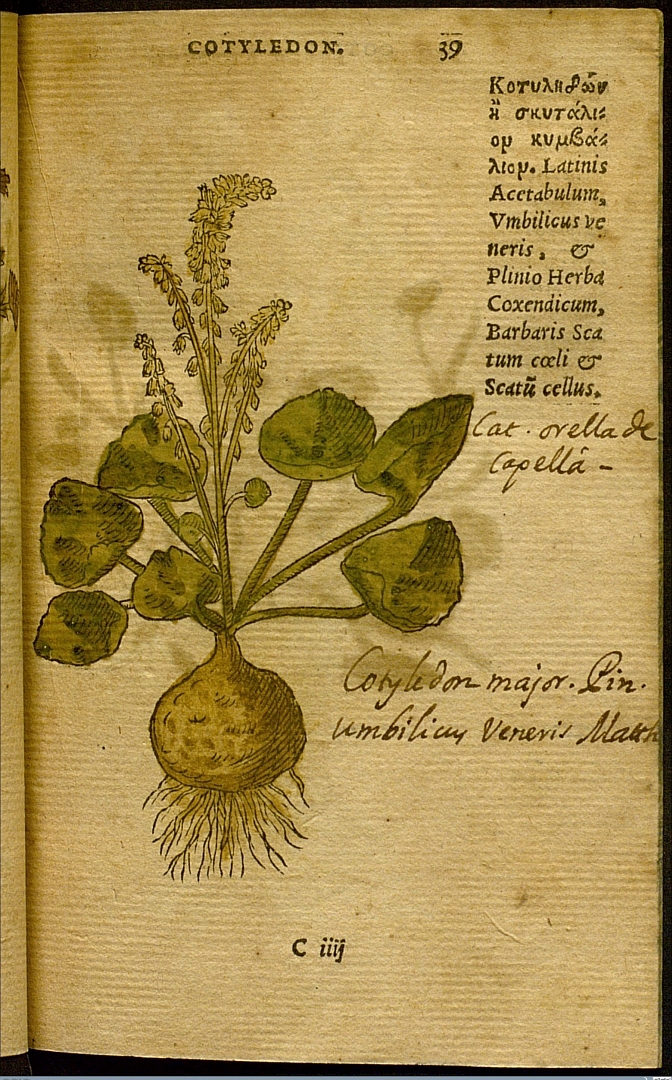 COTYLEDON. 39
Κοτυληδὼν
ἢ σκυτάλι-
ον κυμβά-
λιον. Latinis
Acetabulum,
Vmbilicus ve
neris, &
Plinio Herba
Coxendicum,
Barbaris Sca
tum cœli &
Scatũ cellus.
Cat. orella de
capellà -
Cotyledon major. Pin.
umbilicus Veneris Matth
C iiij